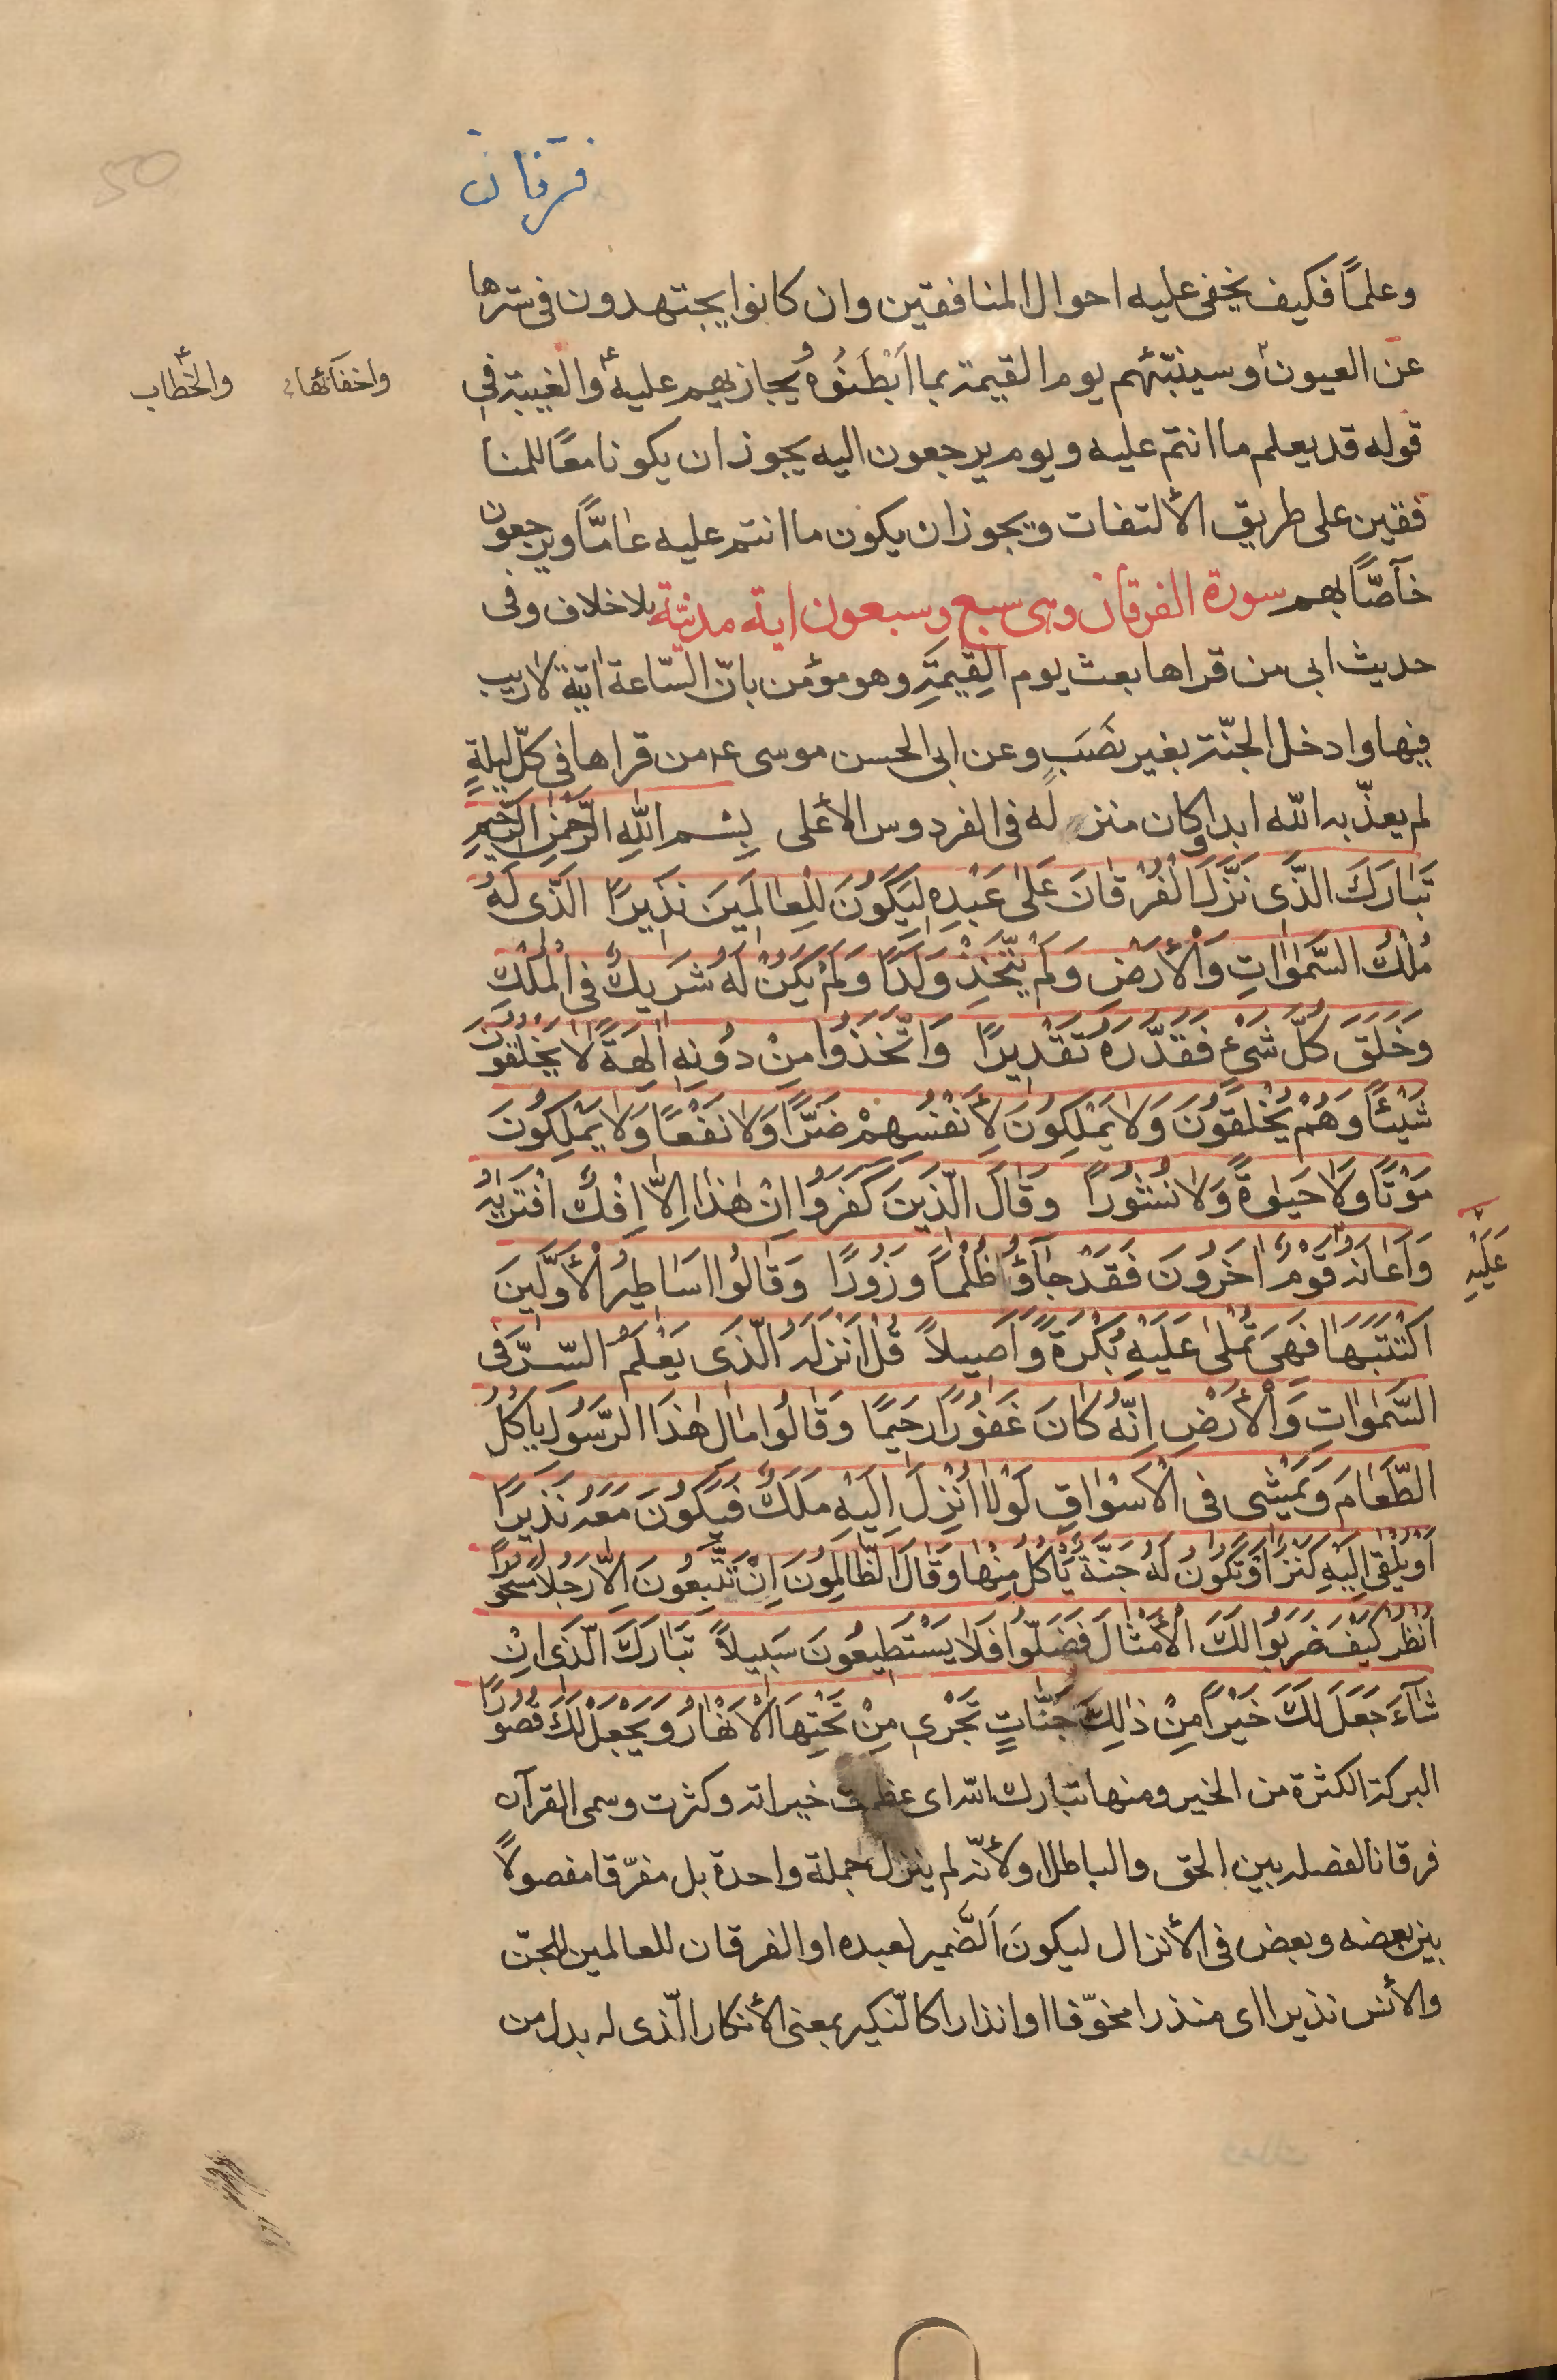 فرقان
50
وعلمًا فكيف يخفى عليه احوال المنافقين وان كانوا يجتهدون فى سترها
عن العيون وسينبّئهم يوم القيمة بما اَبْطَنُوُه ويجازيهم عليه والغيبة فى
واخفآئها
والخطاب
قوله قد يعلم ما انتم عليه ويوم يرجعون اليه يجوز ان يكونا معًا للمنا
فقين على طريق الألتفات ويجوز ان يكون ما انتم عليه عامًّا ويرجعون
خآصًّا بهم سورة الفرقان وهى سبع وسبعون اية مدنيّة بلا خلاف وفى
حديث ابى من قراها بعث يوم القِيمَةِ وهو مؤمن بانّ السّاعة اتية لا ريب
فيها وادخل الجنّة بغير نصَبٍ وعن ابى الحسن موسى ع من قراها فى كلّ ليلةٍ
لم يعذّبه الله ابدا وكان منزله فى الفردوس الأعلى بِسْمِ اللهِ الرَّحْمٰنِ الرَّحِيمِ
تَبٰارَكَ الَّذى نَزَّلَ الْفُرْقٰانَ عَلىٰ عَبْدِهِ لِيَكُونَ لِلْعٰالَمينَ نَذيرًا الَّذى لَهُ
مُلْكُ السَّمٰوٰاتِ وَالْأَرْضِ وَلَمْ يَتَّخِذْ وَلَدًا وَلَمْ يَكُنْ لَهُ شَريكٌ فى الْمُلْكِ
وَخَلَقَ كُلَّ شَىْءٍ فَقَدَّرَهُ تَقْديرًا وَاتَّخَذُوا مِنْ دُونِهِ اٰلِهَةً لاٰ يَخْلُقُونَ
شَيْئًا وَهُمْ يُخْلَقُونَ وَلاٰ يَمْلِكُونَ لِأَنْفُسِهِمْ ضَرًّا وَلاٰ نَفْعًا وَلاٰ يَمْلِكُونَ
مَوْتًا وَلاٰ حَيٰوةً وَلاٰ نُشُورًا وَقٰالَ الَّذينَ كَفَرُوا اِنْ هٰذا اِلاّٰ اِفْكٌ افْتَرٰيهُ
وَاَعٰانَهُ قَوْمٌ اٰخَرُونَ فَقَدْ جٰآؤُا ظُلْمًا وَزُورًا وَقٰالُوا اَسٰاطيرُ الْأَوَّلينَ
عَلَيْهِ
اكْتَتَبَهٰا فَهِىَ تُمْلىٰ عَلَيْهِ بُكْرَةً وَاَصيلاً قُلْ اَنْزَلَهُ الَّذى يَعْلَمُ السِّرَّ فى
السَّمٰوٰاتِ وَالْأَرْضِ اِنَّهُ كٰانَ غَفُورًا رَحيمًا وَقٰالُوا مٰالِ هٰذَا الرَّسُولِ يَاْكُلُ
الطَّعٰامَ وَيَمْشى فى الْأَسْوٰاقِ لَوْلاٰ اُنْزِلَ اِلَيْهِ مَلَكٌ فَيَكُونَ مَعَهُ نَذيرًا
اَوْ يُلْقىٰ اِلَيْهِ كَنْزٌ اَوْ تَكُونُ لَهُ جَنَّةٌ يَاْكُلُ مِنْهٰا وَقٰالَ الظّٰالِمُونَ اِنْ تَتَّبِعُونَ اِلاّٰ رَجُلاً مَسْحُورًا
انْظُرْ كَيْفَ ضَرَبُوا لَكَ الْأَمْثٰالَ فَضَلُّوا فَلاٰ يَسْتَطيعُونَ سَبيلاً تَبٰارَكَ الَّذى اِنْ
شٰآءَ جَعَلَ لَكَ خَيْرًا مِنْ ذٰلِكَ جَنّٰاتٍ تَجْرى مِنْ تَحْتِهَا الْأَنْهٰارُ وَيَجْعَلْ لَكَ قُصُورًا
البركة الكثرة من الخير ومنها تبارك الله اى عظمت خيراته وكثرت وسمى القرآن
فرقانا لفصله بين الحق والباطل او لأنّه لم ينزل جملة واحدة بل مفرّقا مفصولاً
بين بعضه وبعض فى الأنزال ليكونَ اَلضَّمير لعبده او الفرقان للعالمين للجنّ
والأنس نذيرا اى منذرا مخوّفا او انذارا كالنّكير بمعنى الأنكار الّذى له بدل من